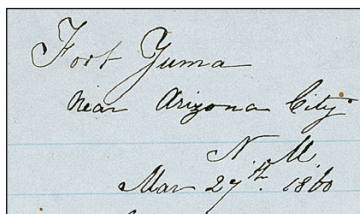 Fort Yuma
near Arizona City
N. M.
Mar 27th. 1860